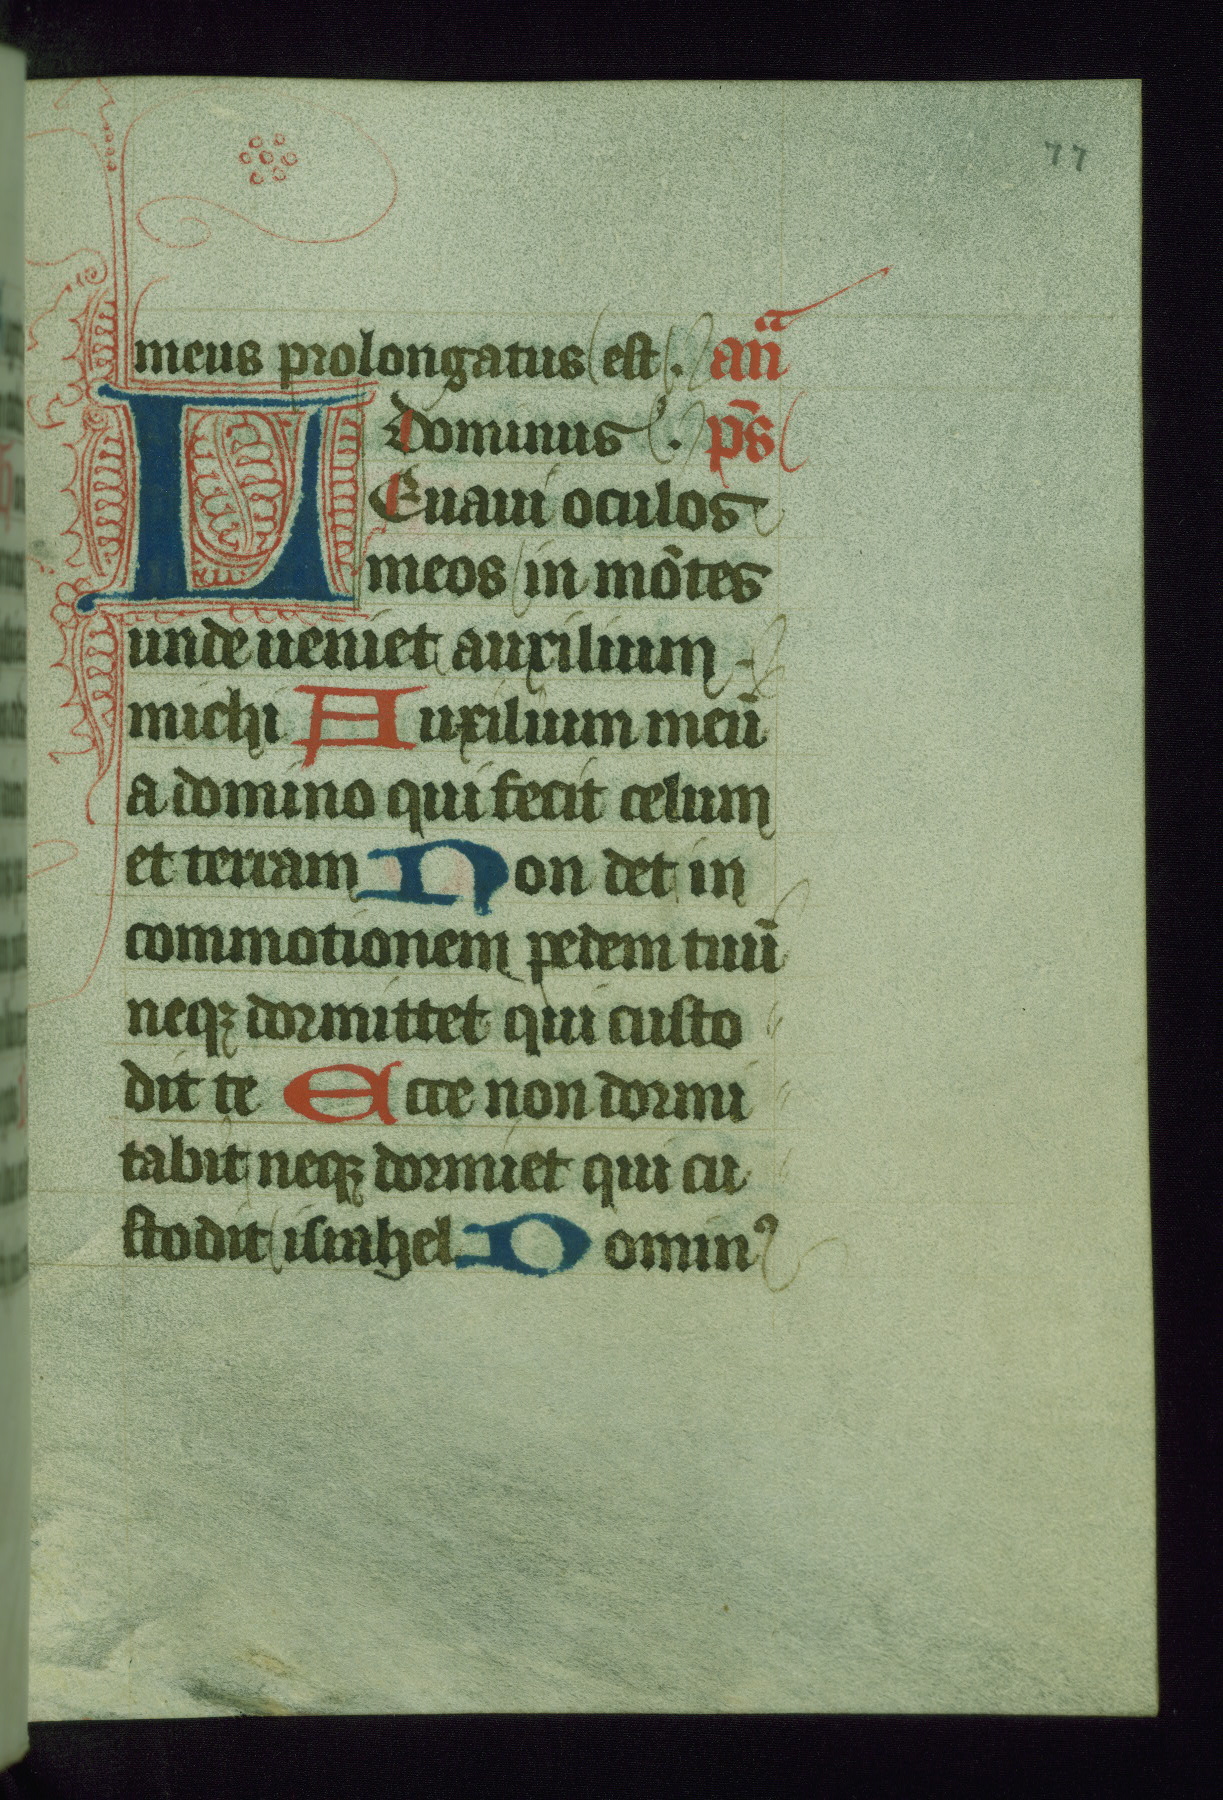 77
meus prolongatus est. an̄
Dominus. ps̄
LEuaui oculos
meos in mōtes
unde ueniet auxilium
michi Auxilium meū
a domino qui fecit celum
et terram Non det in
commotionem pedem tuū
neqꝫ dormittet qui custo
dit te Ecce non dormi
tabit neqꝫ dormiet qui cu
stodit israhel Dominꝰ